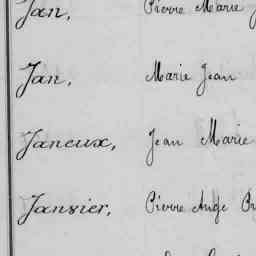 Jan, Pierre Marie
Jan, Marie Jean
Janeux, Jean Marie
Janvier, Pierre Ange